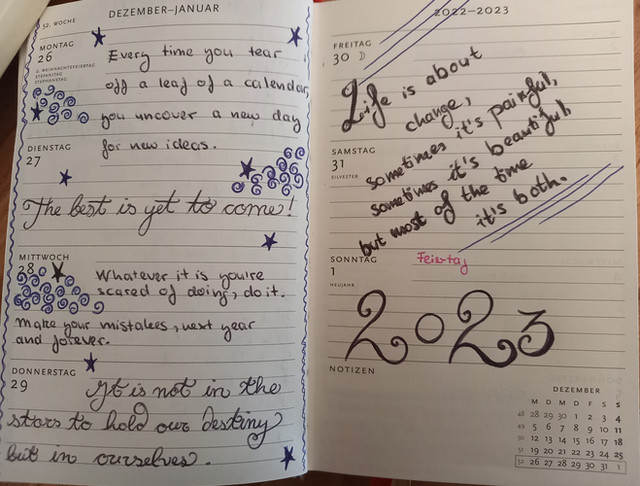 52. WOCHE
DEZEMBER–JANUAR
MONTAG
26
2. WEIHNACHTSFEIERTAG
STEFANITAG
STEPHANSTAG
Every time you tear
off a leaf of a calendar,
you uncover a new day
for new ideas.
DIENSTAG
27
The best is yet to come!
MITTWOCH
28
Whatever it is you're
scared of doing, do it.
Make your mistakes, next year
and forever.
DONNERSTAG
29
It is not in the
stars to hold our destiny
but in ourselves.
2022–2023
FREITAG
30
Life is about
change,
sometimes it's painful,
sometimes it's beautiful,
but most of the time
it's both.
SAMSTAG
31
SILVESTER
SONNTAG
1
Feiertag
NEUJAHR
2023
NOTIZEN
DEZEMBER
M D M D F S S
48 28 29 30 1 2 3 4
49 5 6 7 8 9 10 11
50 12 13 14 15 16 17 18
51 19 20 21 22 23 24 25
52 26 27 28 29 30 31 1